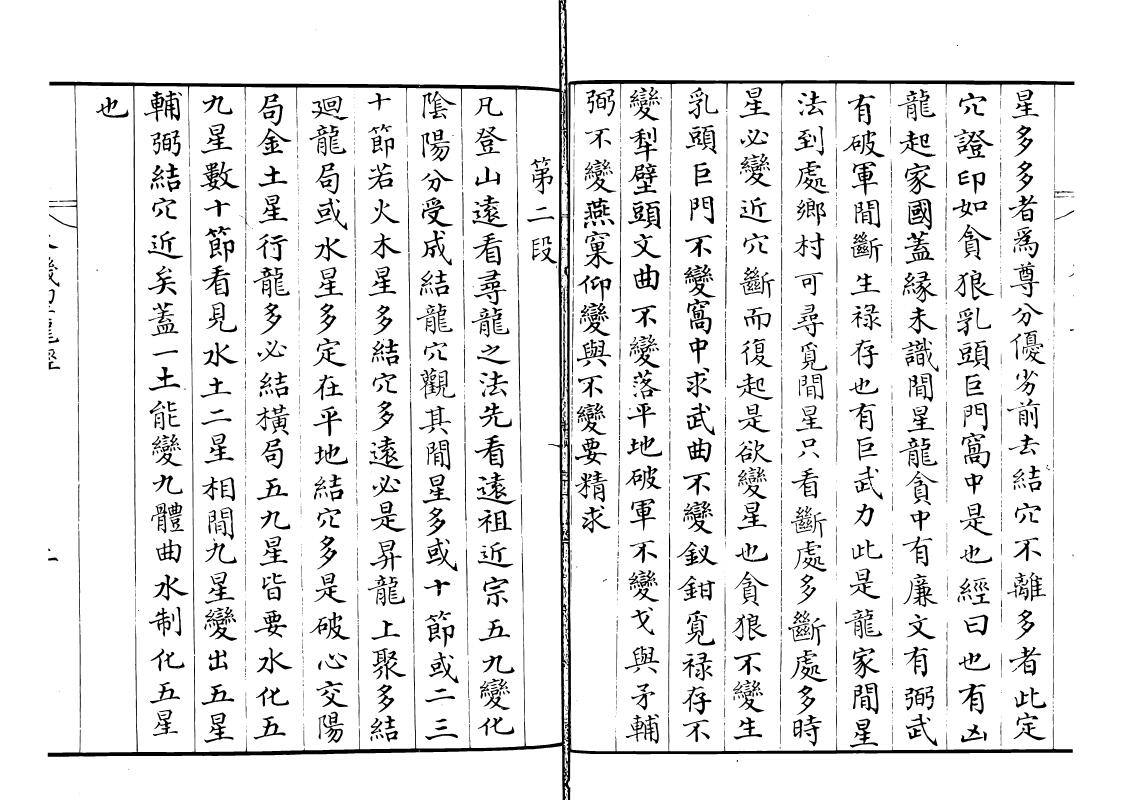 星多多者爲尊分優劣前去結穴不離多者此定
穴證印如貪狼乳頭巨門窩中是也經曰也有凶
龍起家國蓋緣未識間星龍貪中有廉文有弼武
有破軍間斷生祿存也有巨武力此是龍家間星
法到處鄉村可尋覓間星只看斷處多斷處多時
星必變近穴斷而復起是欲變星也貪狼不變生
乳頭巨門不變窩中求武曲不變釵鉗覓祿存不
變犁壁頭文曲不變落平地破軍不變戈與矛輔
弼不變燕窠仰變與不變要精求
第二段
凡登山遠看尋龍之法先看遠祖近宗五九變化
陰陽分受成結龍穴觀其間星多或十節或二三
十節若火木星多結穴多遠必是昇龍上聚多結
廻龍局或水星多定在平地結穴多是破心交陽
局金土星行龍多必結橫局五九星皆要水化五
九星數十節看見水土二星相間九星變出五星
輔弼結穴近矣蓋一土能變九體曲水制化五星
也